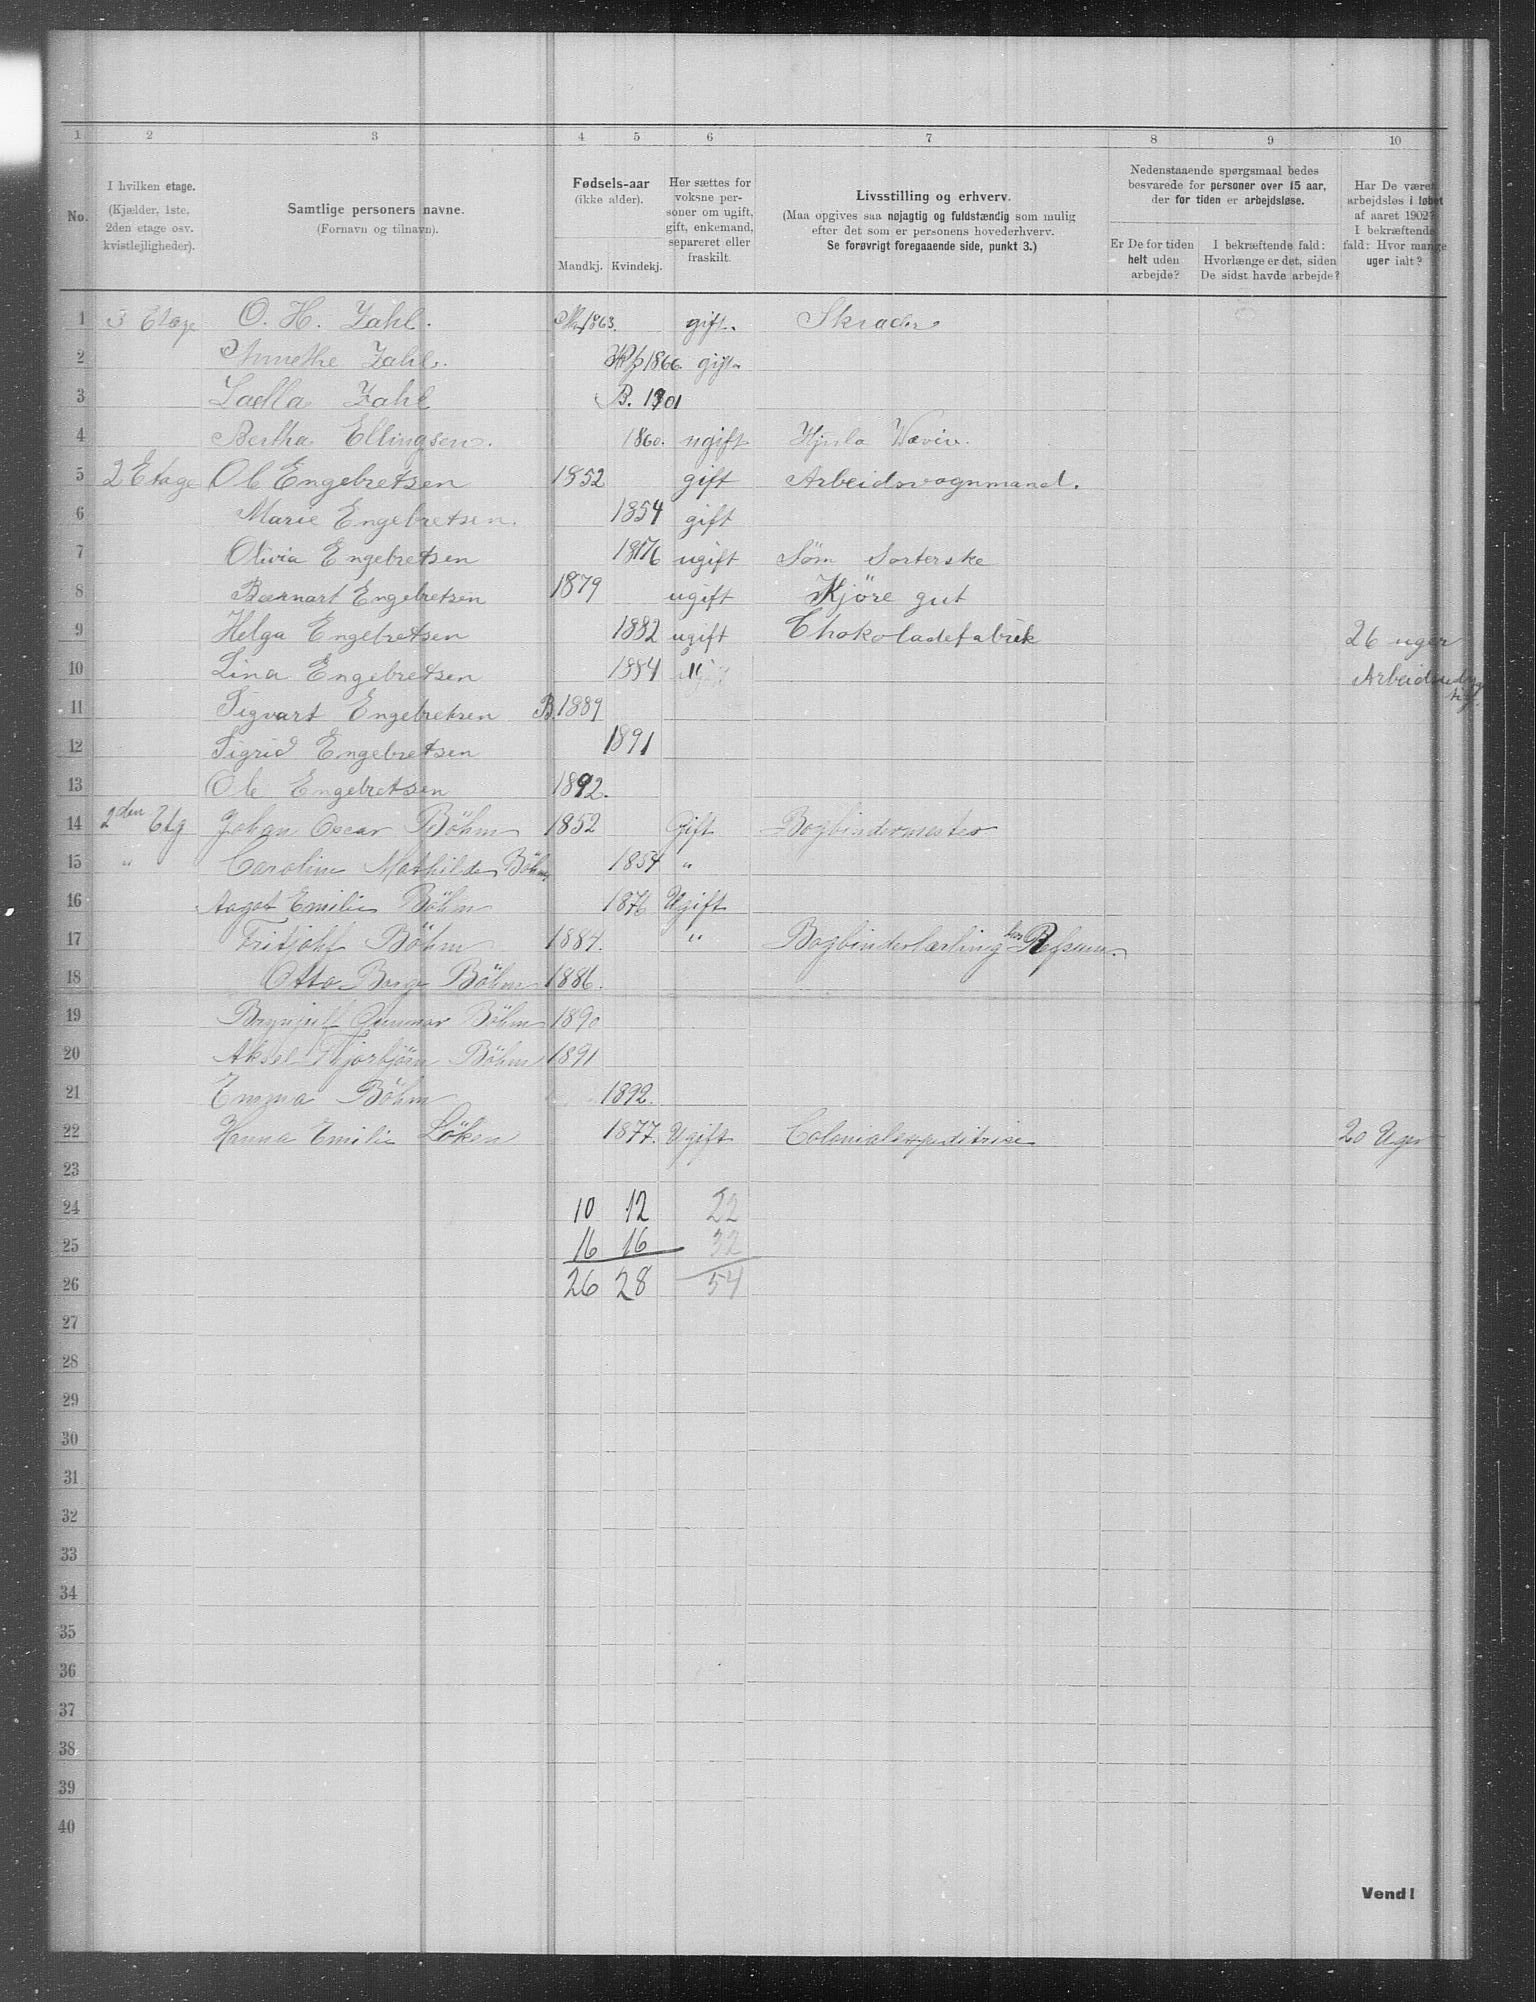 1 2 3 4 5 6 7 8 9 10
No.
I hvilken etage. (Kjælder, 1ste, 2den etage osv. kvistlejligheder).
Samtlige personers navne. (Fornavn og tilnavn).
Fødsels-aar (ikke alder). Mandkj. Kvindekj.
Her sættes for voksne personer om ugift, gift, enkemand, separeret eller fraskilt.
Livsstilling og erhverv. (Maa opgives saa nøjagtig og fuldstændig som mulig efter det som er personens hovederhverv. Se forøvrigt foregaaende side, punkt 3.)
Nedenstaaende spørgsmaal bedes besvarede for personer over 15 aar, der for tiden er arbejdsløse.
Er De for tiden helt uden arbejde?
I bekræftende fald: Hvorlænge er det, siden De sidst havde arbejde?
Har De været arbejdsløs i løbet af aaret 1902? I bekræftende fald: Hvor mange uger ialt?
1 3 Etage O. H. Zahl. 1863. gift. Skræder
2 Annethe Zahl. 1866. gift
3 Zahl B. 1901
4 Bertha Ellingsen. 1860. ugift Hjula Væveri.
5 2 Etage Ole Engebretsen 1852 gift Arbeidsvognmand.
6 Marie Engebretsen. 1854 gift
7 Olivia Engebretsen 1876 ugift Søm Sorterske
8 Bernart Engebretsen 1879 ugift Kjöre gut
9 Helga Engebretsen 1882 ugift Chokoladefabrik 26 uger
10 Lina Engebretsen 1884 " Arbeidsudygtig.
11 Sigvart Engebretsen B. 1889
12 Sigrid Engebretsen 1891
13 Ole Engebretsen 1892.
14 2den Etg Johan Oscar Böhm 1852 Gift Bogbindermester
15 " Caroline Mathilde Böhm 1854 "
16 Aagot Emilie Böhm 1876 Ugift
17 Fritjohf Böhm 1884. " Bogbinderlærling hos Refsum.
18 Otto Böhm 1886.
19 Gunnar Böhm 1890
20 Aksel Thjorbjörn Böhm 1891
21 Emma Böhm 1892.
22 Hanna Emilie Löken 1877. Ugift Colonialexpeditrise 20 Uger
23
24 10 12 22
25 16 16 32
26 26 28 54
27
28
29
30
31
32
33
34
35
36
37
38
39
40
Vend!